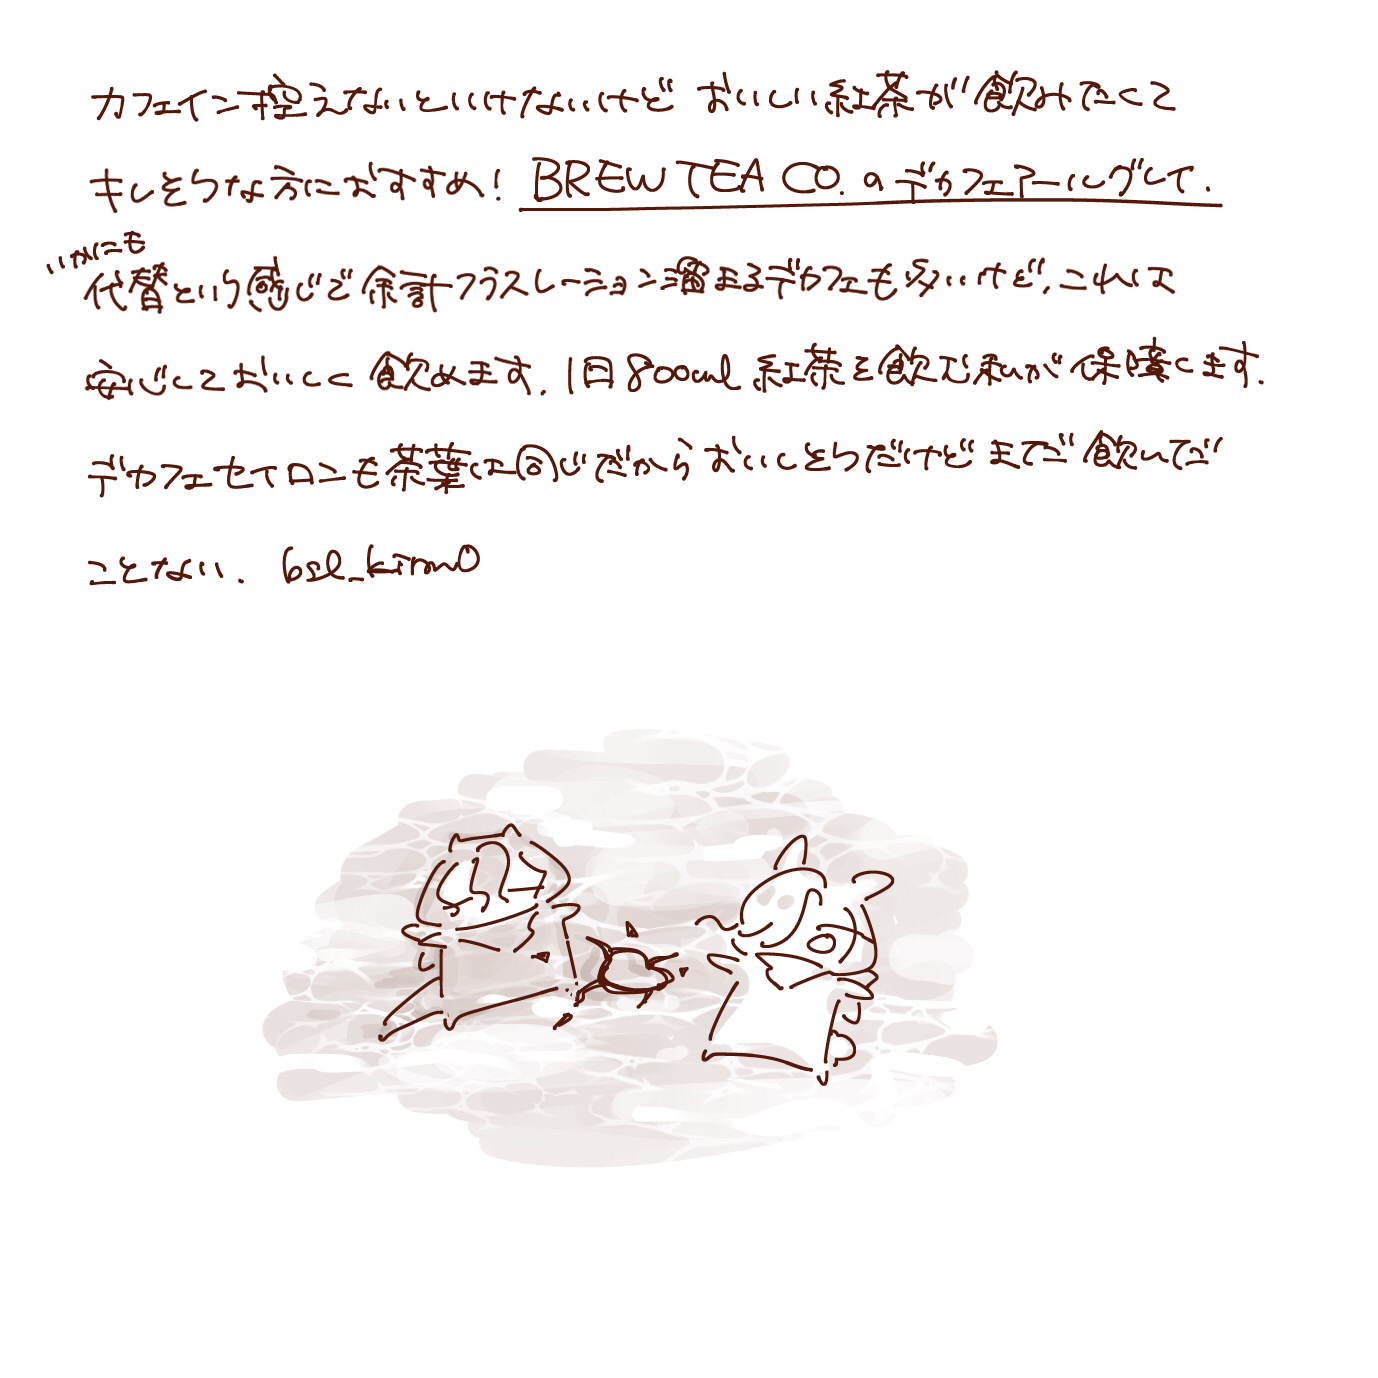 カフェイン控えないといけないけど おいしい紅茶が飲みたくて
キレそうな方におすすめ! BREW TEA CO. のデカフェアールグレイ.
いかにも
代替という感じで余計フラストレーション溜まるデカフェも多いけど、これは
安心しておいしく飲めます. 1日800ml 紅茶を飲む私が保障します.
デカフェセイロンも茶葉は同じだからおいしそうだけどまだ飲んだ
ことない.